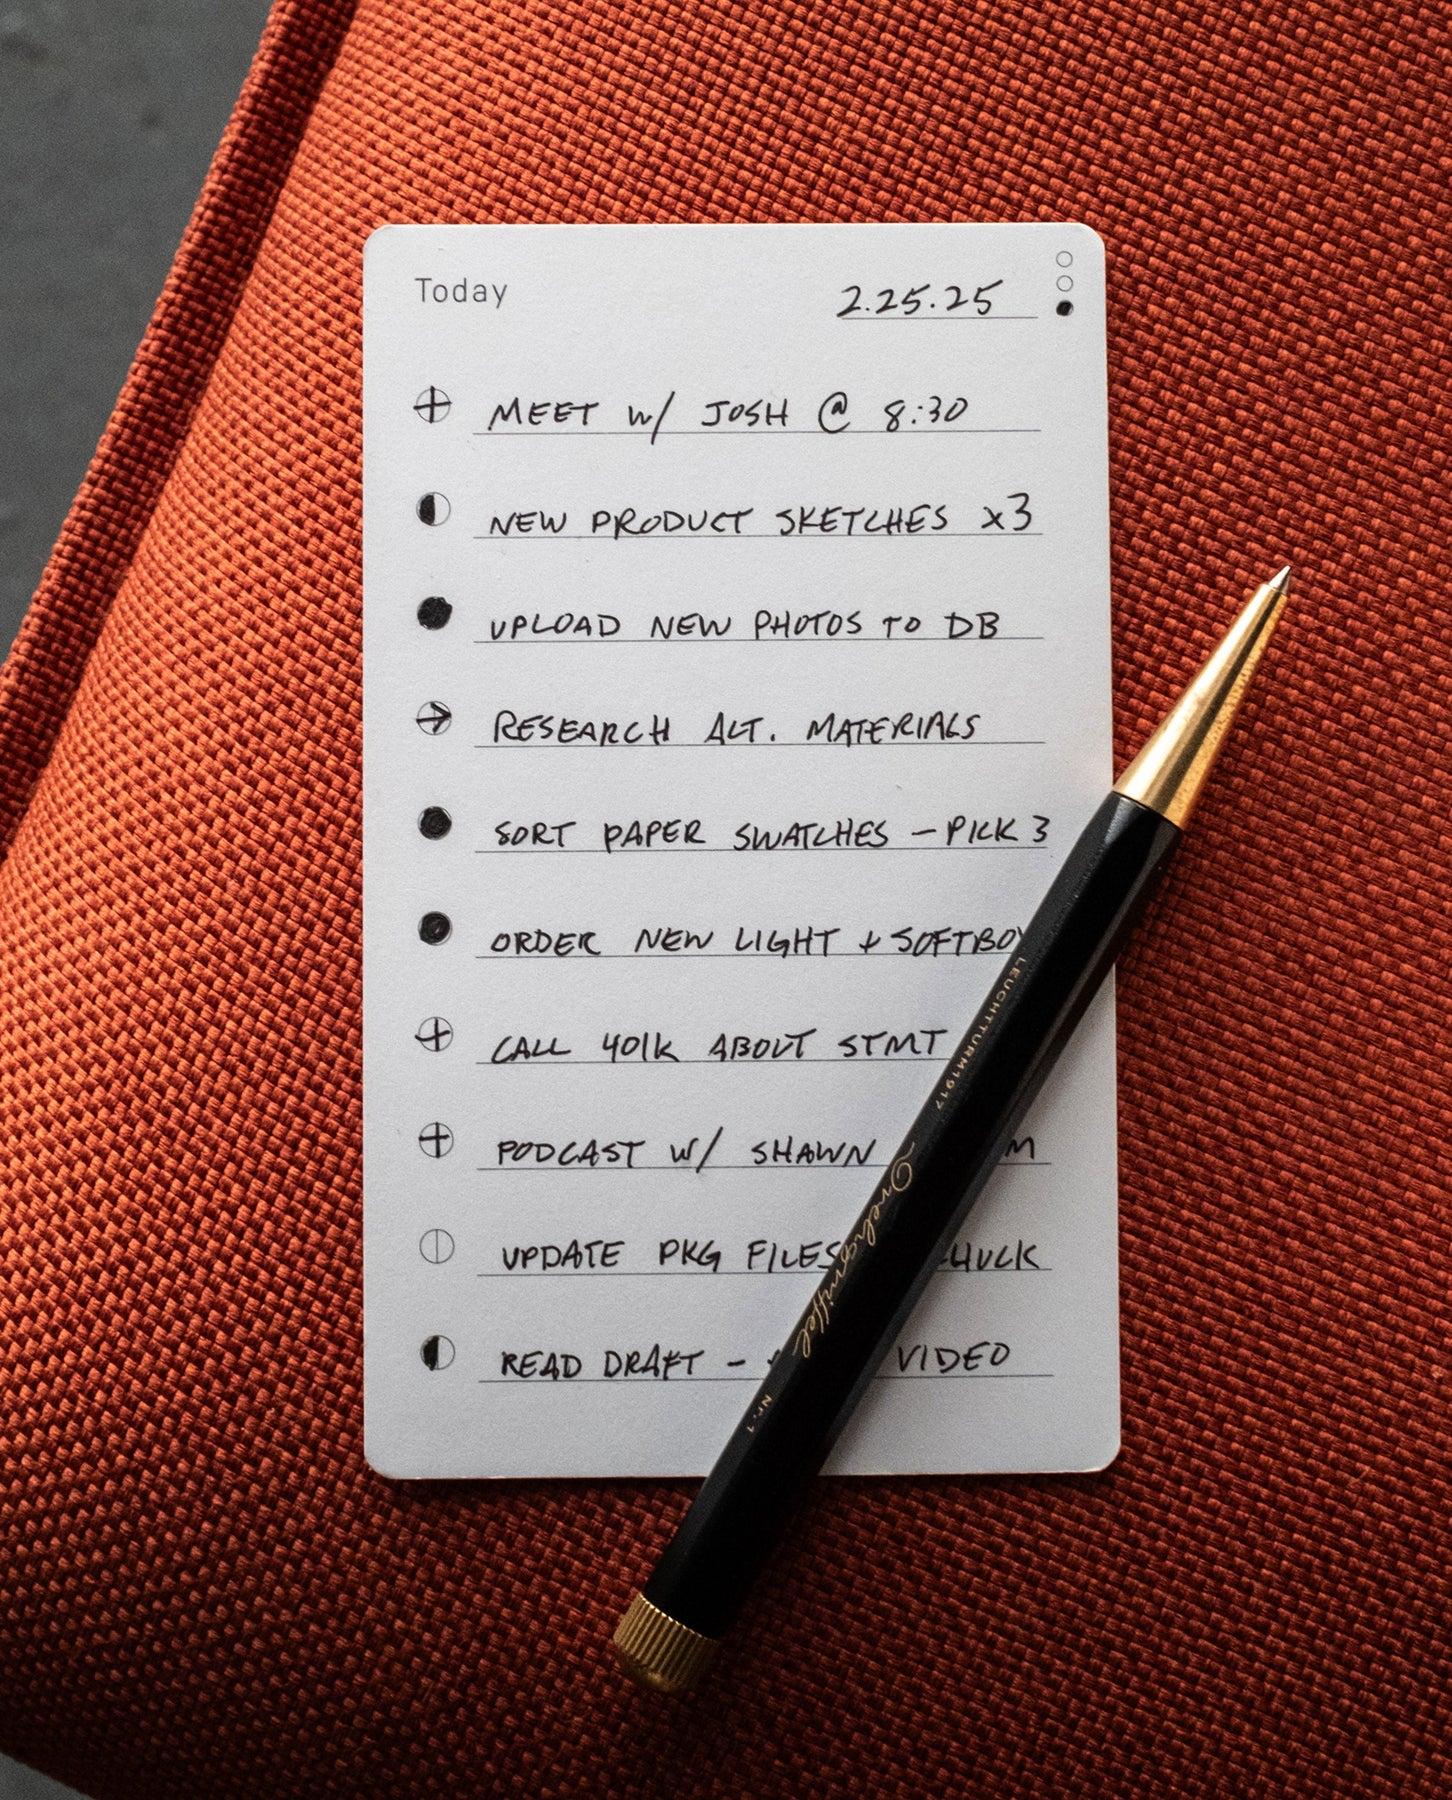 Today
2.25.25
MEET W/ JOSH @ 8:30
NEW PRODUCT SKETCHES X3
UPLOAD NEW PHOTOS TO DB
RESEARCH ALT. MATERIALS
SORT PAPER SWATCHES - PICK 3
ORDER NEW LIGHT + SOFTBOX
CALL 401K ABOUT STMT
PODCAST W/ SHAWN
UPDATE PKG FILES
READ DRAFT - VIDEO
LEUCHTTURM1917
Drehgriffel
Nr. 1